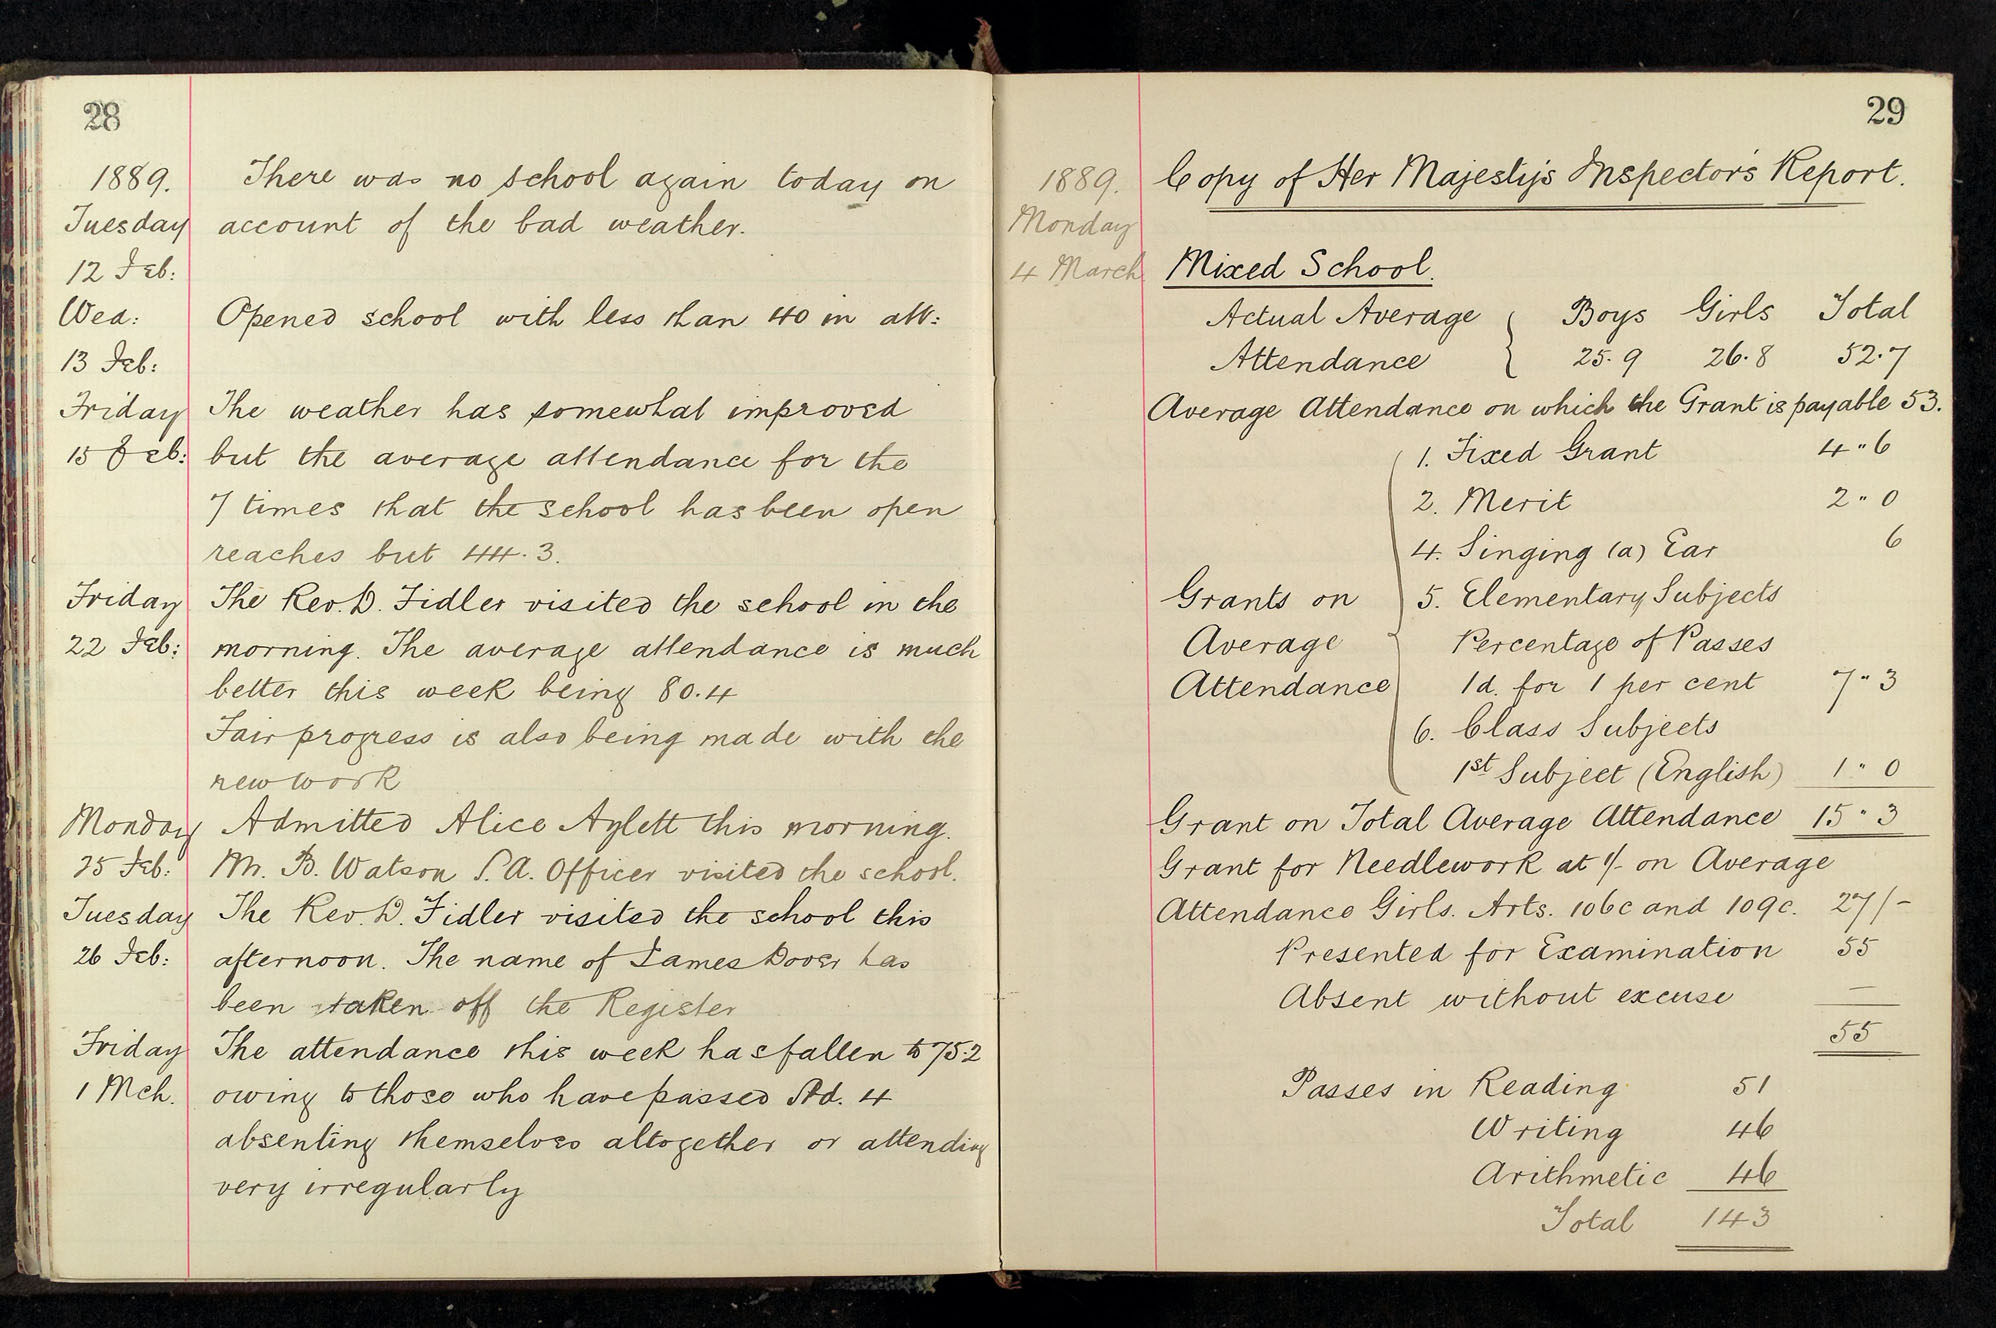 28
1889. There was no school again today on
Tuesday account of the bad weather.
12 Feb:
Wed: Opened school with less than 40 in att:
13 Feb:
Friday The weather has somewhat improved
15 Feb: but the average attendance for the
7 times that the school has been open
reaches but 44.3.
Friday The Rev. D. Fidler visited the school in the
22 Feb: morning. The average attendance is much
better this week being 80.4
Fair progress is also being made with the
new work
Monday Admitted Alice Aylett this morning.
25 Feb: Mr. B. Watson S.A. Officer visited the school.
Tuesday The Rev. D. Fidler visited the school this
26 Feb: afternoon. The name of James Dover has
been taken off the Register
Friday The attendance this week has fallen to 75.2
1 Mch. owing to those who have passed Std. 4
absenting themselves altogether or attending
very irregularly
29
1889. Copy of Her Majesty's Inspector's Report.
Monday
4 March Mixed School.
Actual Average { Boys Girls Total
Attendance 25.9 26.8 52.7
Average Attendance on which the Grant is payable 53.
1. Fixed Grant 4 " 6
2. Merit 2 " 0
4. Singing (a) Ear 6
Grants on 5. Elementary Subjects
Average Percentage of Passes
Attendance 1d. for 1 per cent 7 " 3
6. Class Subjects
1st Subject (English) 1 " 0
Grant on Total Average Attendance 15 " 3
Grant for Needlework at 1/- on Average
Attendance Girls. Arts. 106c and 109c. 27/-
Presented for Examination 55
Absent without excuse —
55
Passes in Reading 51
Writing 46
Arithmetic 46
Total 143